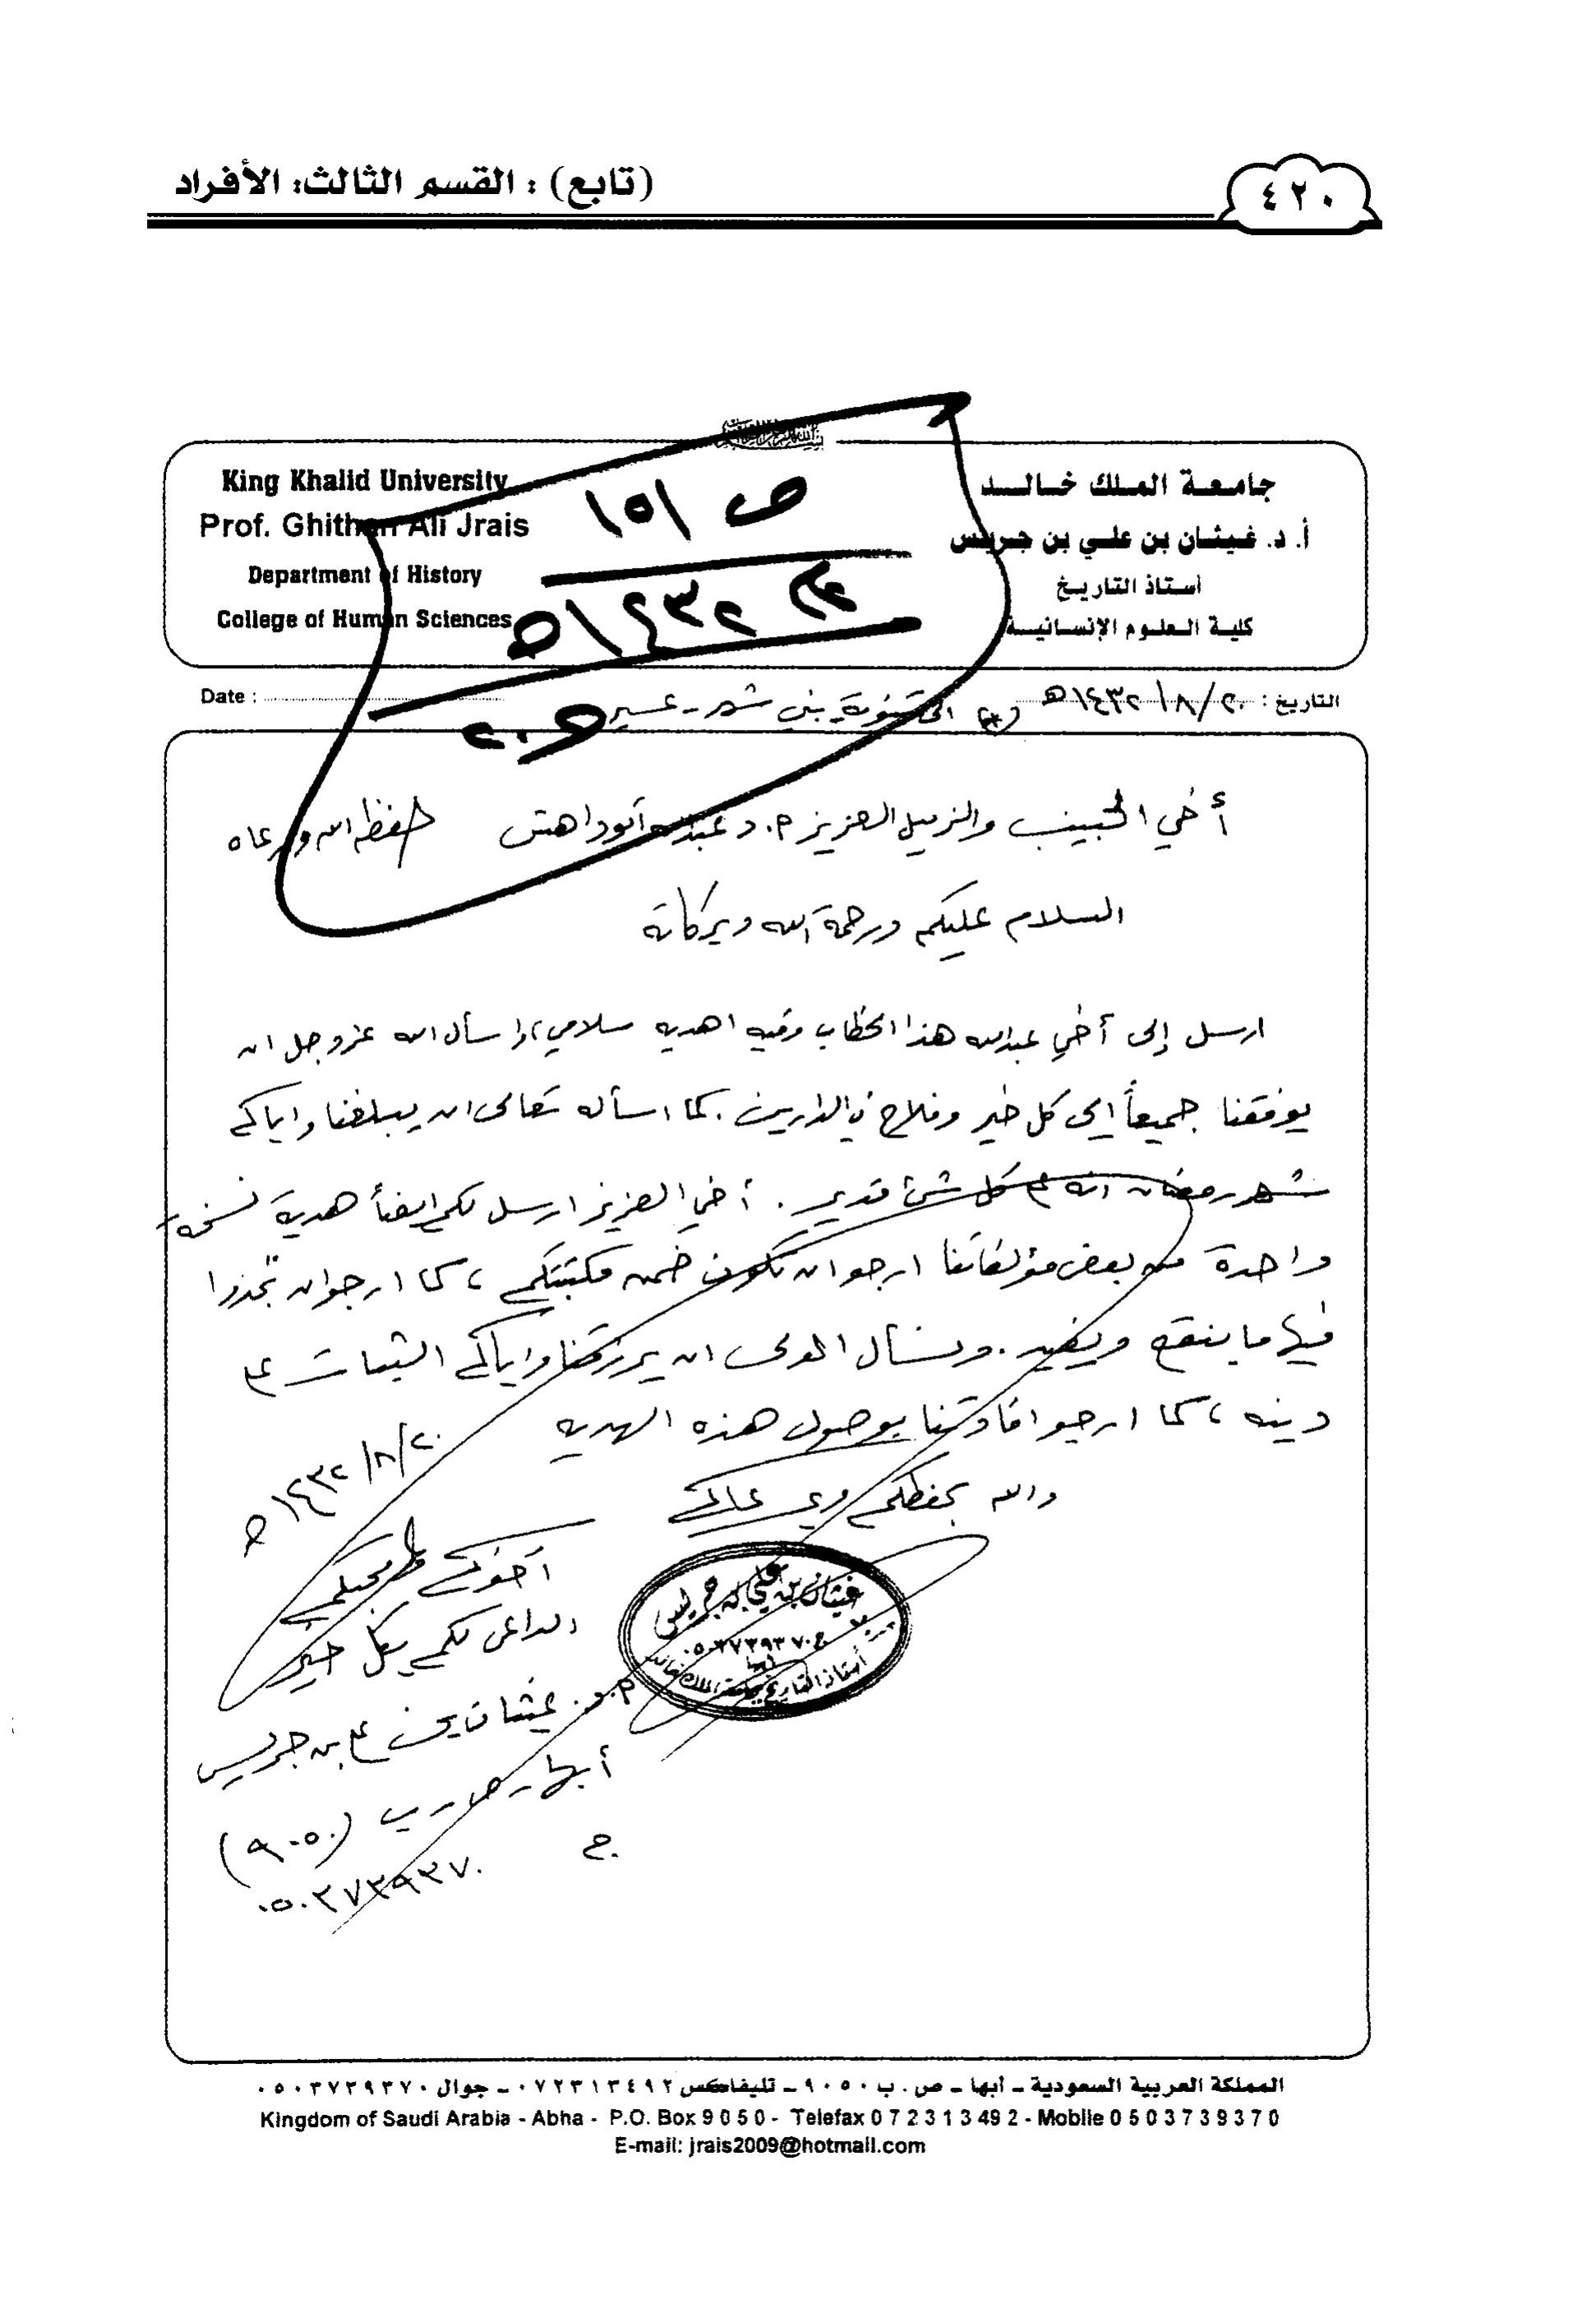 (تابع) : القسم الثالث: الأفراد
٤٢٠
King Khalid University
Prof. Ghithan Ali Jrais
Department of History
College of Human Sciences
جامعة الملك خالد
أ. د. غيثان بن علي بن جريس
أستاذ التاريخ
كلية العلوم الإنسانية
ص ١٥١
١٤٣٢هـ
Date :
التاريخ : ٢٠/٨/١٤٣٢هـ
بني شهر - عسير
أخي الحبيب والزميل العزيز أ.د عبدالله أبوداهش حفظه الله ورعاه
السلام عليكم ورحمة الله وبركاته
ارسل إلى أخي عبدالله هذا الخطاب وفيه اهديه سلامي، وأسأل الله عز وجل ان
يوفقنا جميعاً إلى كل خير وفلاح في الدارين. كما اسأله تعالى ان يبلغنا واياكم
شهر رمضان انه على كل شئ قدير. أخي العزيز ارسل لكم ايضاً هدية نسخة
واحدة من بعض مؤلفاتنا ارجو ان تكون ضمن مكتبتكم، كما ارجو ان تجدوا
فيها ما ينفع ويفيد. ونسأل المولى ان يرزقنا واياكم الثبات على
دينه، كما ارجو افادتنا بوصول هذه الهدية
والله يحفظكم ويرعاكم
٢٠/٨/١٤٣٢هـ
أخوكم ومحبكم
الداعي لكم بكل خير
أ.د. غيثان بن علي بن جريس
أبها - ص.ب (٩٠٥٠)
ج ٠٥٠٣٧٣٩٣٧٠
غيثان بن علي بن جريس
ج ٠٥٠٣٧٣٩٣٧٠
أبها
أستاذ التاريخ بجامعة الملك خالد
المملكة العربية السعودية - أبها - ص. ب ٩٠٥٠ - تليفاكس ٠٧٢٣١٣٤٩٢ - جوال ٠٥٠٣٧٣٩٣٧٠
Kingdom of Saudi Arabia - Abha - P.O. Box 9 0 5 0 - Telefax 0 7 2 3 1 3 49 2 - Mobile 0 5 0 3 7 3 9 3 7 0
E-mail: jrais2009@hotmail.com